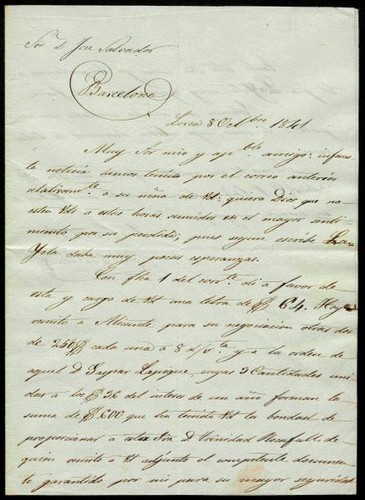 Sor D. José Salvador
Barcelona
Lorca 8 Octbre 1841
Muy Sor mio y apble amigo: infaus
ta noticia hemos tenido por el correo anterior
relativamte a su niña de Vd: quiera Dios que no
esten Vds a estas horas sumidos en el mayor senti-
miento por su perdida; pues segun escribe
daba muy pocas esperanzas.
Con fha 1 del corrte di a favor de
esta y cargo de Vd una letra de 64. Hoy
remito a Alicante para su negociacion otras dos
de 250 cada una a 8 d/v y a la orden de
aquel D. Gaspar cuyas 3 Cantidades uni-
das a los 36 del interes de un año forman la
suma de 600 que ha tenido Vd la bondad de
proporcionar a esta Sra Da Trinidad
quien remito a Vd adjunto el competente documen-
to garantido por mi para su mayor seguridad